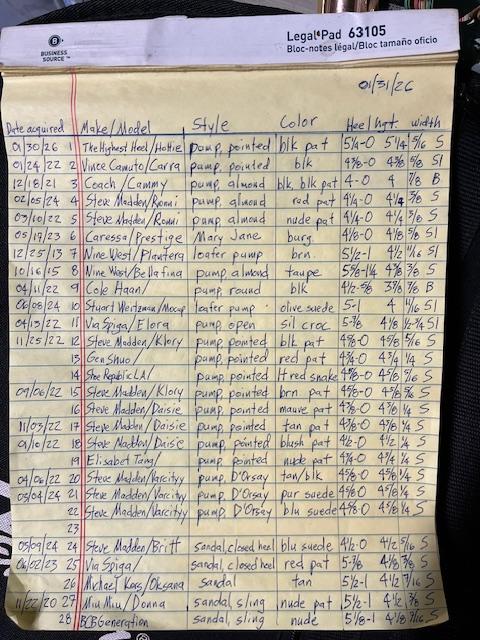 BUSINESS SOURCE™
Legal Pad 63105
Bloc-notes légal/Bloc tamaño oficio
01/31/26
Date acquired Make/Model Style Color Heel hgt. width
01/30/26 1 The Highest Heel/Hottie pump, pointed blk pat 5¼-0 5¼ 5/16 S
01/24/22 2 Vince Camuto/Carra pump, pointed blk 4⅜-0 4⅜ 5/8 Sl
12/18/21 3 Coach/Cammy pump, almond blk, blk pat 4-0 4 7/8 B
02/05/24 4 Steve Madden/Ronni pump, almond red pat 4¼-0 4¼ 3/8 S
03/10/22 5 Steve Madden/Ronni pump, almond nude pat 4¼-0 4¼ 3/8 S
05/17/23 6 Caressa/Prestige Mary Jane burg. 4⅛-0 4⅛ 5/8 Sl
12/25/13 7 Nine West/Plantera loafer pump brn. 5½-1 4½ 11/16 Sl
10/16/15 8 Nine West/Bellafina pump, almond taupe 4⅜ 3/8 S
04/11/22 9 Cole Haan/ pump, round blk 3⅞ 7/8 B
06/08/24 10 Stuart Weitzman/Mocup loafer pump olive suede 5-1 4 Sl
04/13/22 11 Via Spiga/Elora pump, open sil croc 4⅛ Sl
11/25/22 12 Steve Madden/Klory pump, pointed blk pat 4⅝-0 4⅝ 5/16 S
13 Gen Shuo/ pump, pointed red pat 4¾-0 4¾ ¼ S
14 Shoe Republic LA/ pump, pointed H red snake 4⅝-0 4⅝ S
09/06/22 15 Steve Madden/Klory pump, pointed brn pat 4⅝-0 4⅝ 5/16 S
16 Steve Madden/Daisie pump, pointed mauve pat 4⅜-0 4⅜ ¼ S
11/03/22 17 Steve Madden/Daisie pump, pointed tan pat 4⅜-0 4⅜ ¼ S
01/10/22 18 Steve Madden/Daisie pump, pointed blush pat 4½-0 4½ ¼ S
19 Elisabet Tang/ pump, pointed nude pat 4¾-0 4¾ ¼ S
04/06/22 20 Steve Madden/Varcityy pump, D'Orsay tan/blk 4⅝-0 4⅝ ¼ S
05/04/24 21 Steve Madden/Varcityy pump, D'Orsay pur suede 4⅝-0 4⅝ ¼ S
22 Steve Madden/Varcityy pump, D'Orsay blu suede 4⅝-0 4⅝ ¼ S
23
05/09/24 24 Steve Madden/Britt sandal, closed heel blu suede 4½-0 4½ 5/16 S
06/02/23 25 Via Spiga/ sandal, closed heel red pat 4⅜ 3/8 S
26 Michael Kors/Oksana sandal tan 5½-1 4½ 7/16 S
11/22/20 27 Miu Miu/Donna sandal, sling nude pat 5½-1 4½ 3/8 S
28 BCBGeneration sandal, sling nude 5⅛-1 4⅛ 7/16 S